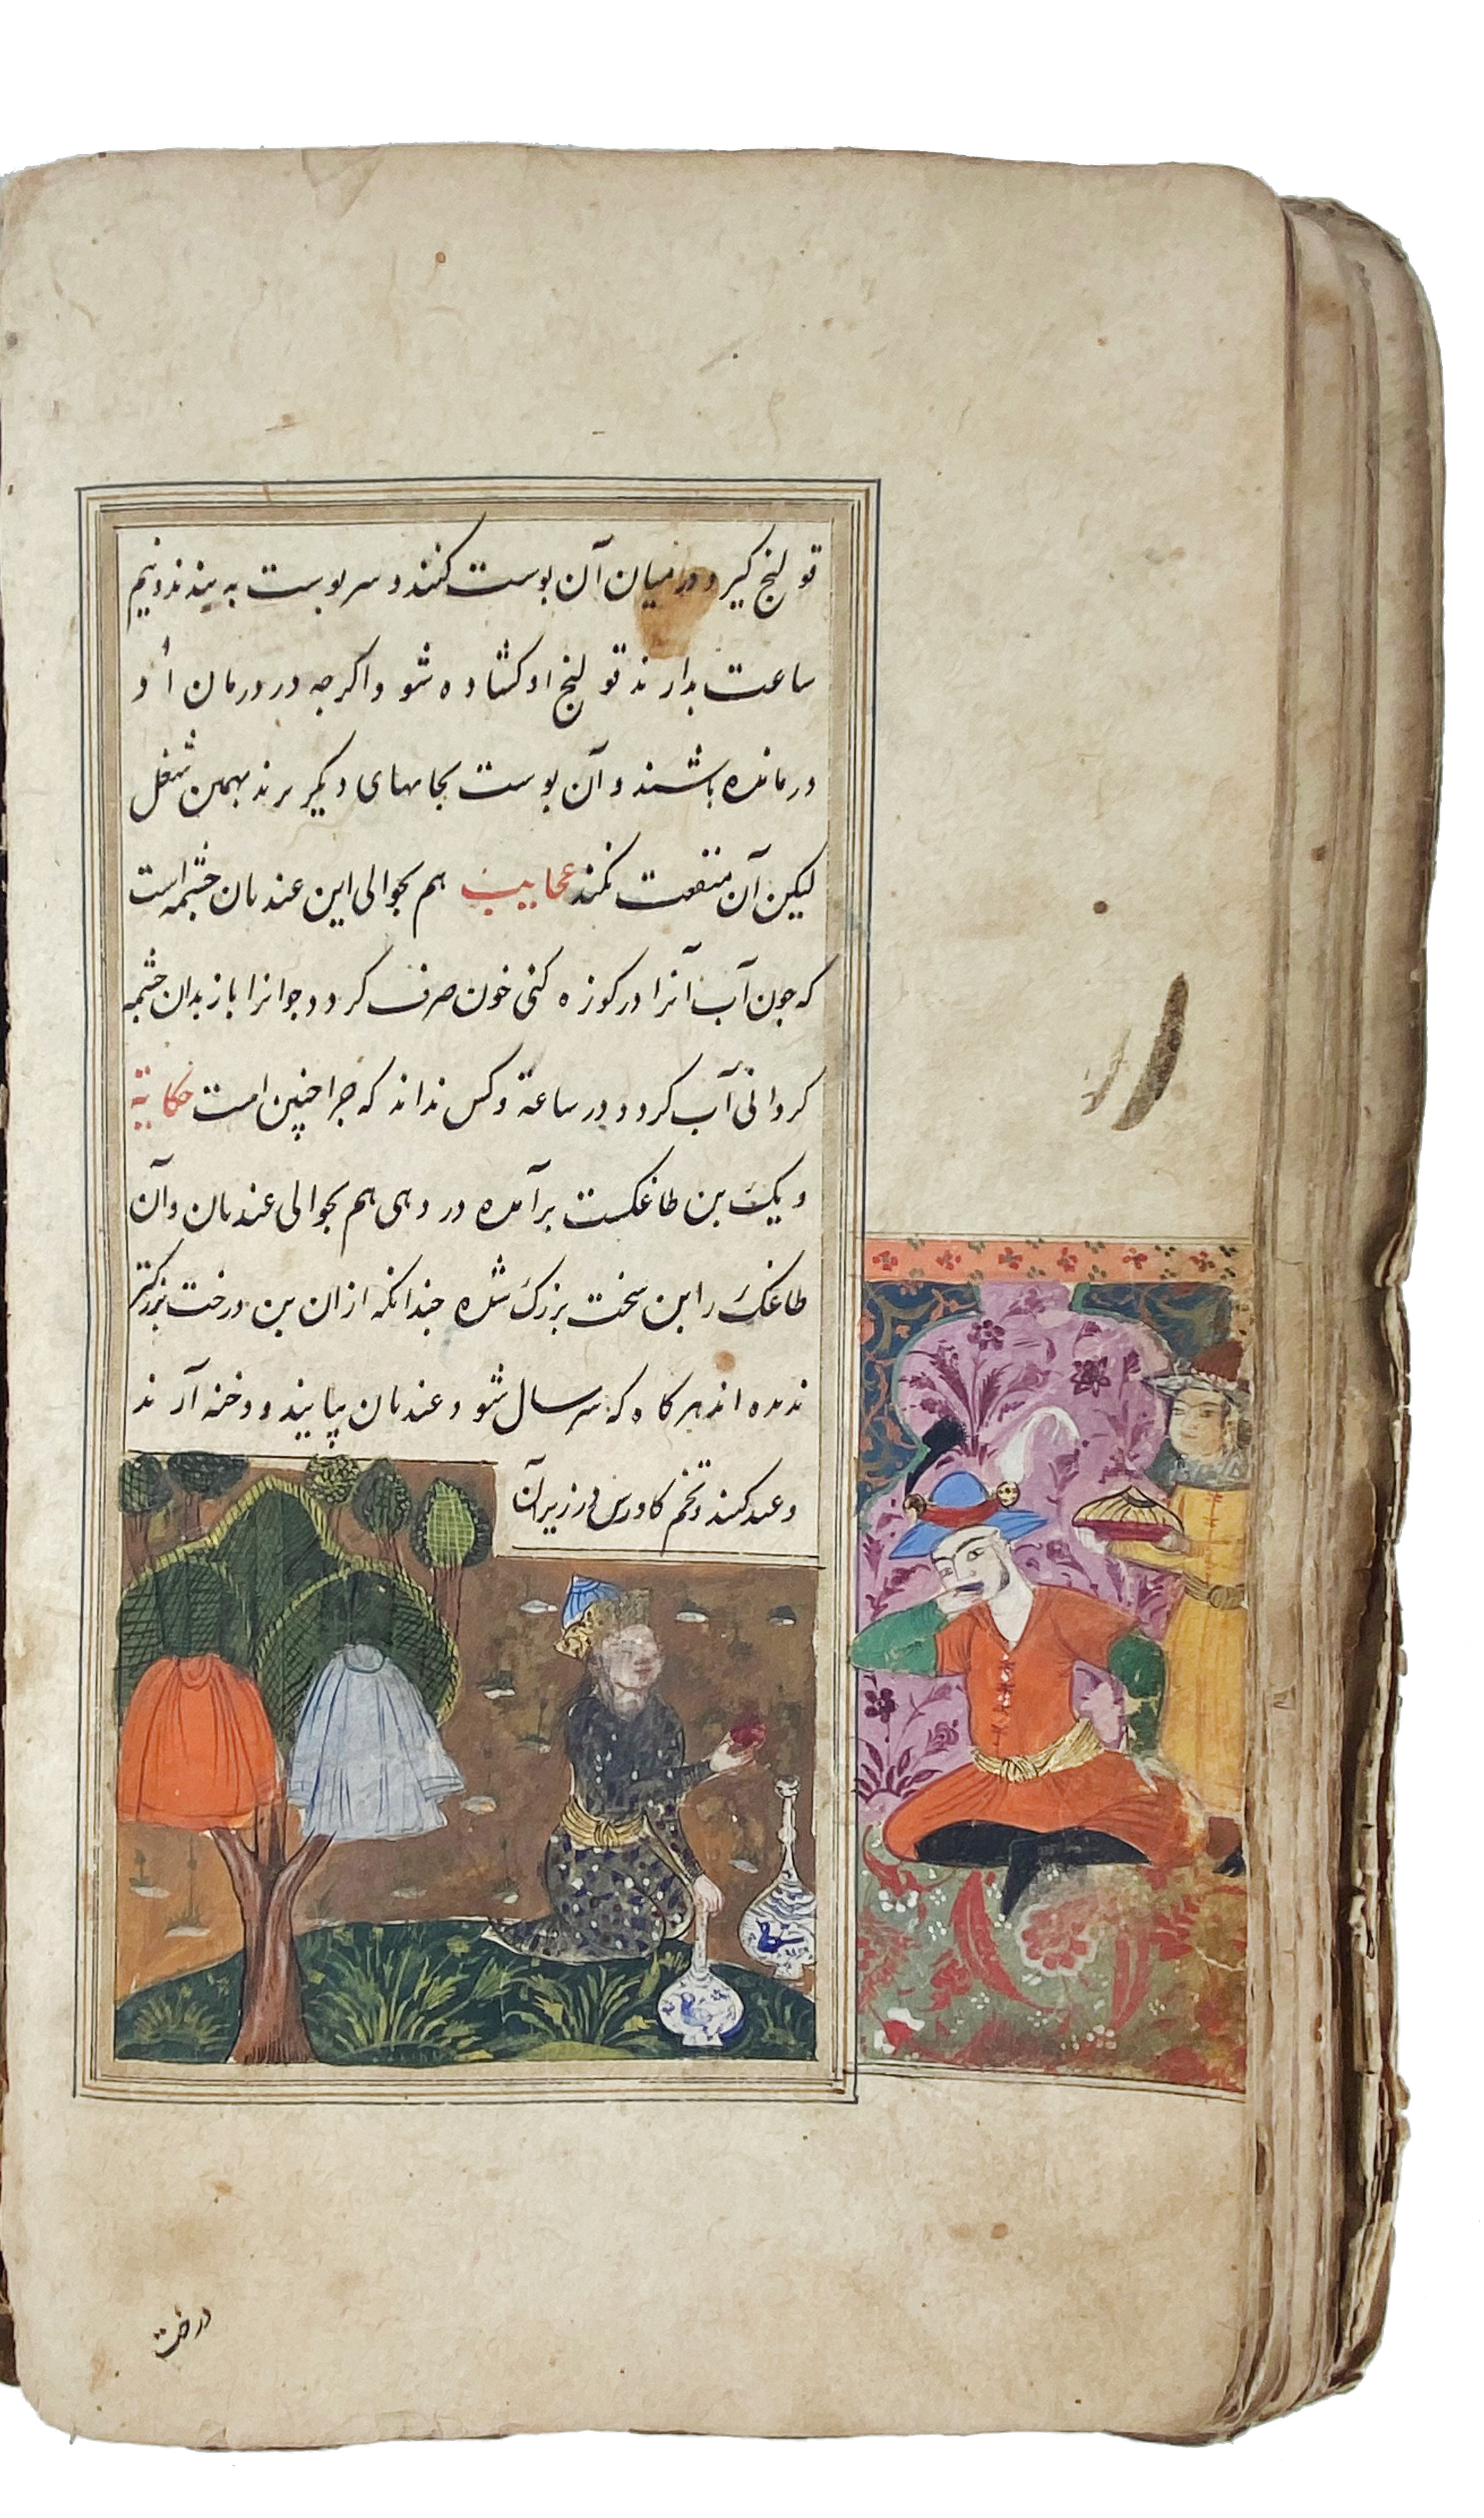 قولنج گیرد درمیان آن پوست کنند و سر پوست به بندند و نیم
ساعت بدارند قولنج او کشاده شو و اکرجه در درمان او
درمانده باشند و آن پوست بجایهای دیکر برند بهمین شغل
لیکن آن منفعت نکند عجایب هم بحوالی این عندمان چشمه است
که جون آب آنرا در کوزه کنی خون صرف کردد و جو آنرا باز بدان چشمه
کردانی آب کردد در ساعة و کس نداند که چرا چنین است حکایة
و یک بن طاغکست برآمده در دهی هم بحوالی عندمان و آن
طاغک را بن سخت بزرک شده چندانکه ازان بن درخت بزرکتر
ندیده اند هر کاه که سر سال شو و عندمان بیایند و دخنه آرند
و عید کنند و تخم کاورس در زیر آن
درخت